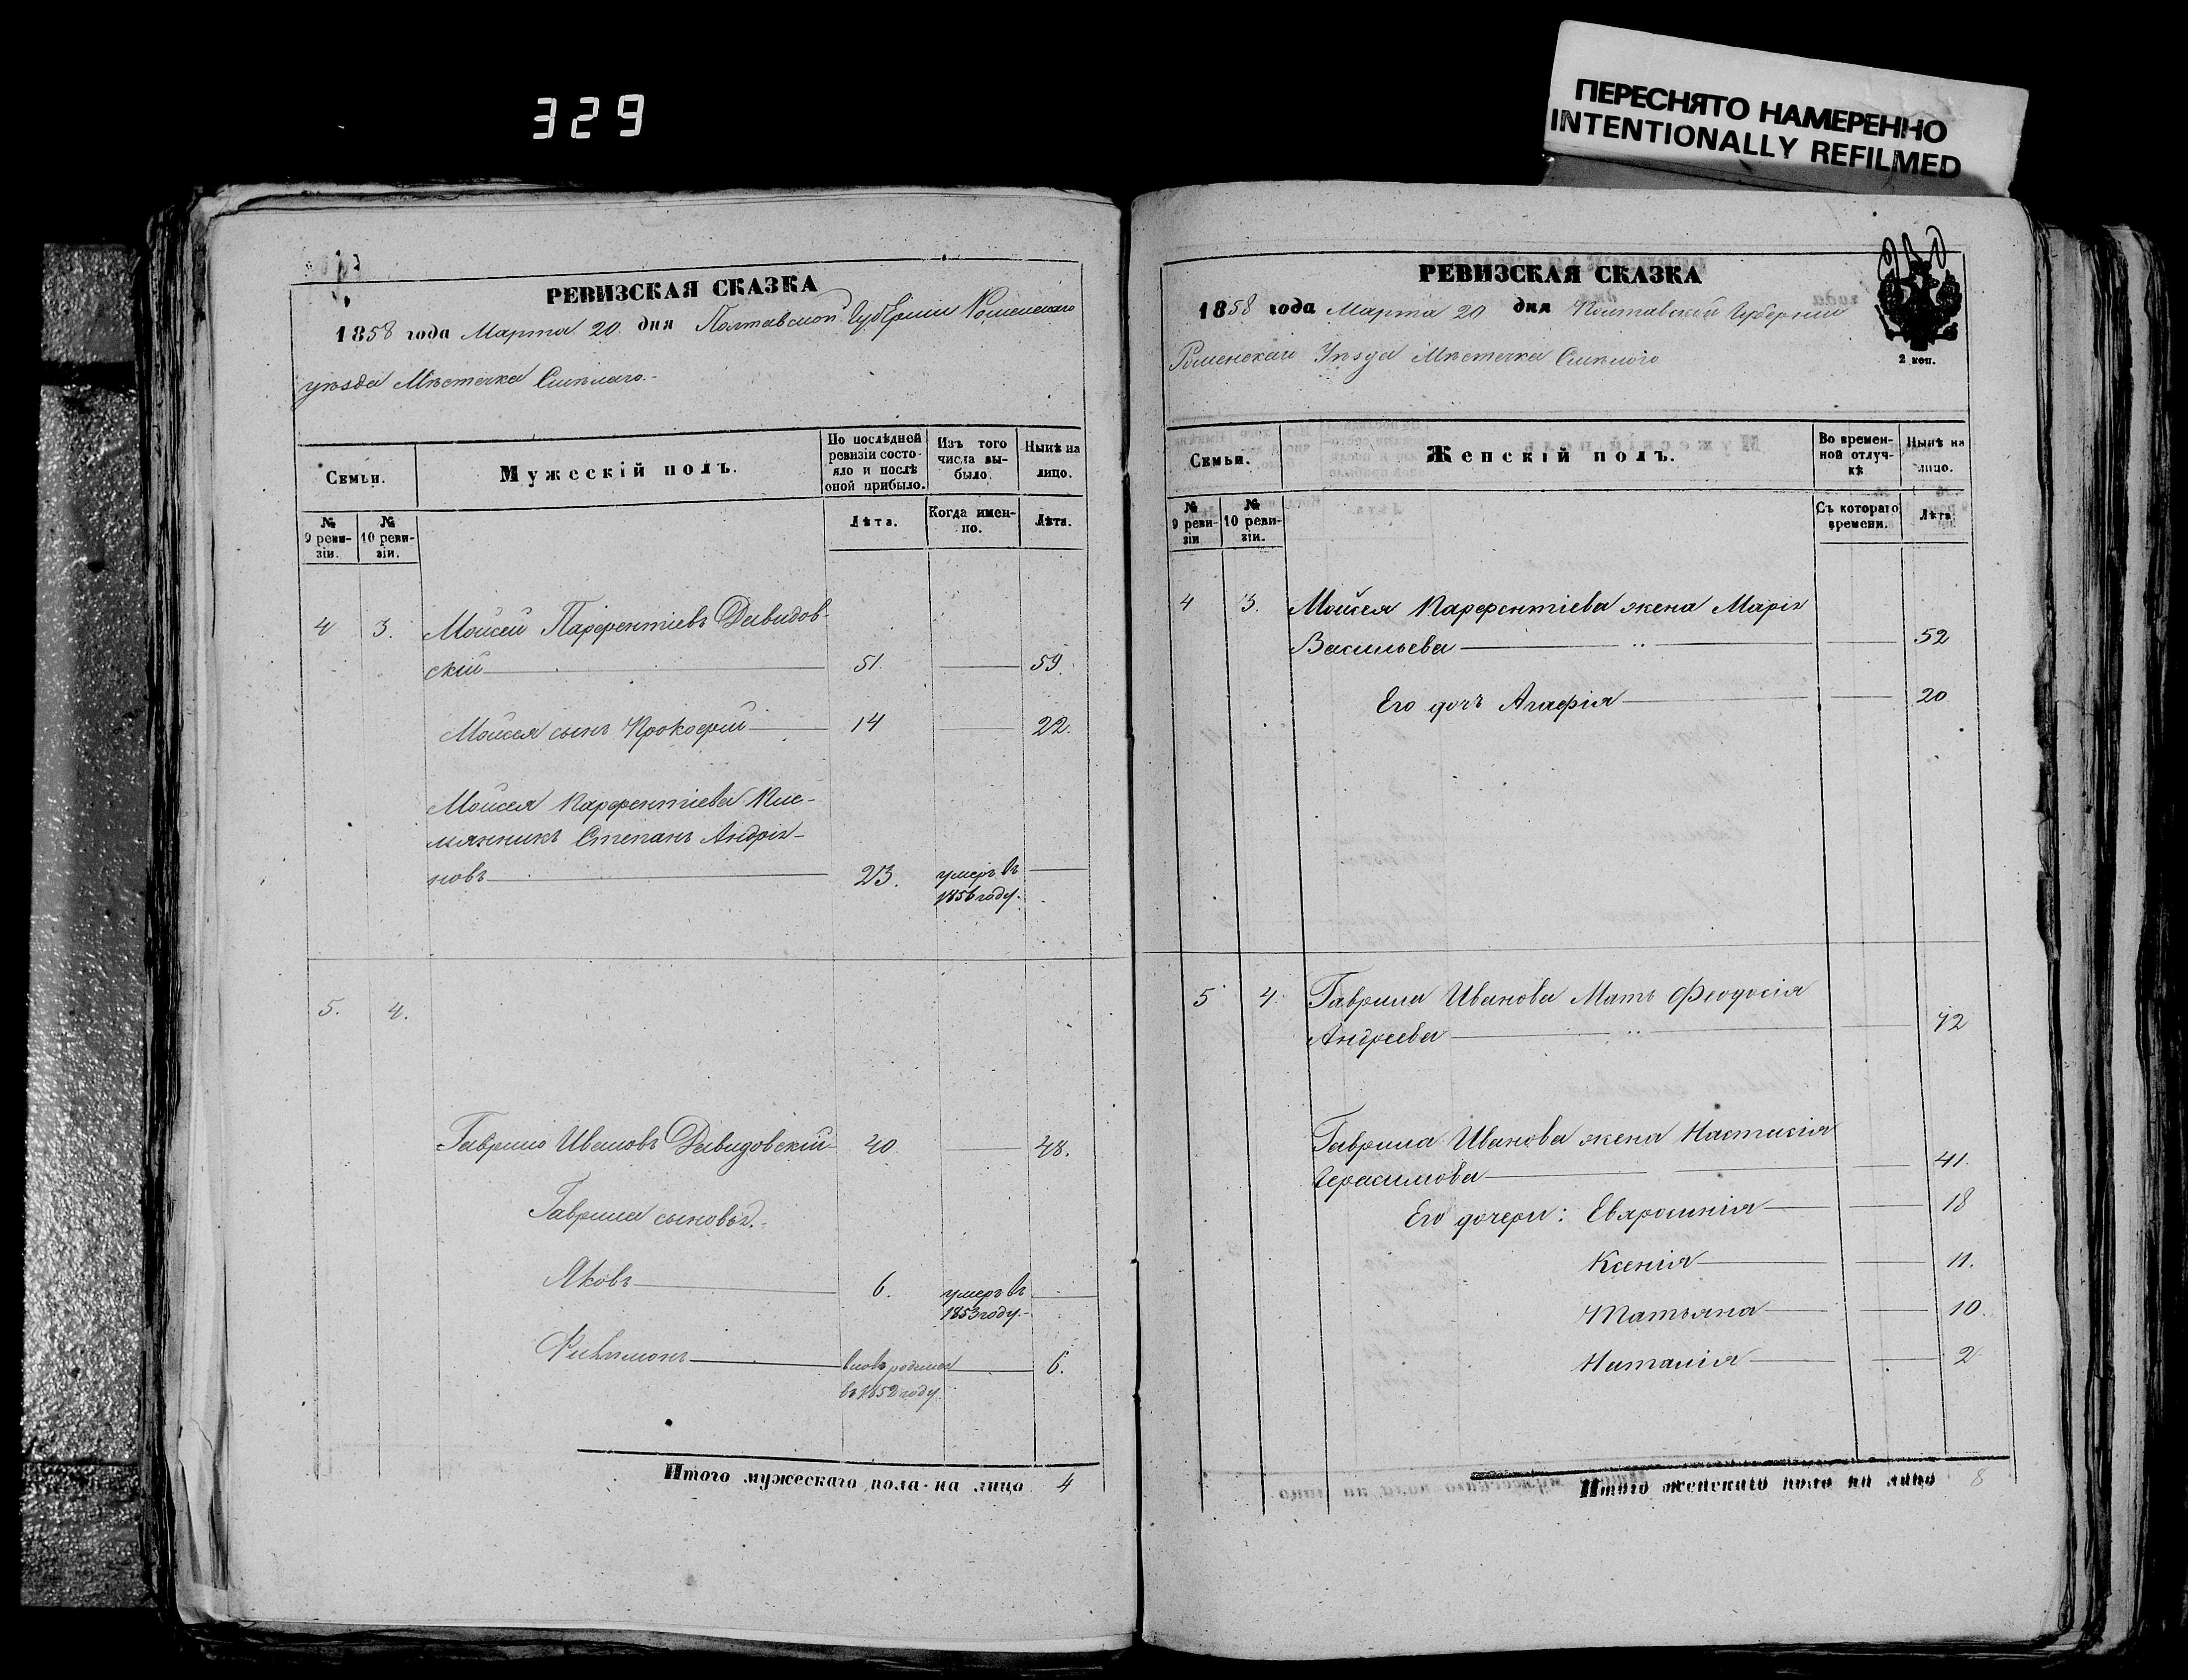 329
ПЕРЕСНЯТО НАМЕРЕННО
INTENTIONALLY REFILMED
РЕВИЗСКАЯ СКАЗКА
1858 года Марта 20 дня Полтавской Губернии Роменскаго
уѣзда Мѣстечка Смѣлаго.
Семьи.
Мужескій полъ.
По послѣдней ревизіи состояло и послѣ оной прибыло.
Изъ того числа выбыло.
Нынѣ на лицо.
№ 9 ревизіи.
№ 10 ревизіи.
Лѣта.
Когда именно.
Лѣта.
4 3. Мойсей Парфентіевъ Давидов-
скій 51. 59.
Мойсея сынъ Прокофій 14 22.
Мойсея Парфентіева Пле-
мянникъ Степанъ Андрія-
новъ 23. умеръ въ
1856 году.
5. 4.
Гаврило Ивановъ Давидовскій 40 48.
Гаврила сыновья:
Яковъ 6. умеръ въ
1853 году.
Филимонъ вновь родился 6.
въ 1852 году.
Итого мужескаго пола на лицо 4
РЕВИЗСКАЯ СКАЗКА
1858 года Марта 20 дня Полтавской Губернии
Роменскаго Уѣзда Мѣстечка Смѣлого
2 коп.
Семьи.
Женскій полъ.
Во временной отлучкѣ
Нынѣ на лицо.
№ 9 ревизіи
№ 10 ревизіи.
Съ котораго времени.
Лѣта.
4 3. Мойсея Парфентіева жена Марія
Васильева 52
Его дочь Агафія 20
5 4. Гаврила Иванова Мать Феодосія
Андреева 72
Гаврила Иванова жена Настасія
Герасимова 41.
Его дочери: Евфросинія 18
Ксенія 11.
Татьяна 10.
Наталія 2
Итого женскаго пола на лицо 8